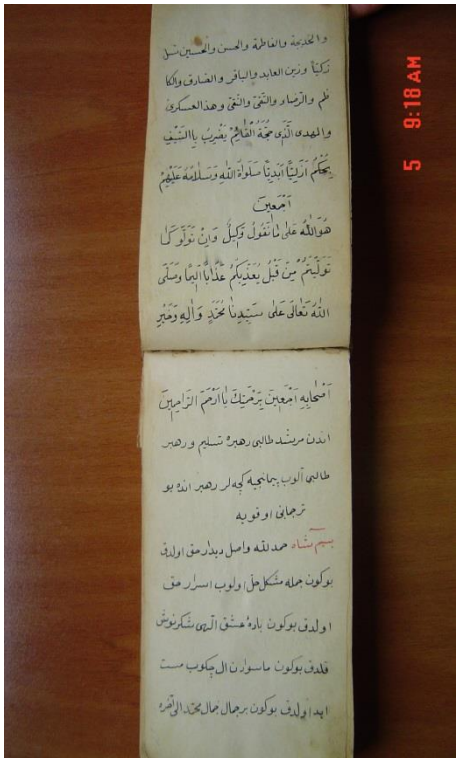 و الخديجة والفاطمة والحسن والحسين نسل
زكيّا وزين العابد والباقر والصادق والكا
ظم والرّضاء والتّقى والنّقى وهذا العسكرى
والمهدى الّذى حجّة القائم يضرب باالسّيف
بحكم ازليّاً ابديّاً صلواة الله وسلامه عليهم
اجمعين
هو الله على ما نقول وكيل وان تولّوا كما
تولّيتم من قبل يعذّبكم عذاباً اليما وصلّى
الله تعالى على سيّدنا محمّد وآله
اصحابه اجمعين برحمتك يا ارحم الراحمين
اندن مرشد طالبى رهبره تسليم و رهبر
طالبى آلوب پيمانجيه كچه لر رهبر انده بو
ترجمانى اوقويه
بسم شاه حمد لله واصل ديدار حق اولدق
بوكون جمله مشكل حل اولوب اسرار حق
اولدق بوكون بادۀ عشق الهى شكر نوش
قلدق بوكون ماسوادن ال چكوب مست
ابد اولدق بوكون بر جمال محمّد الى آخره
5 9:18 AM